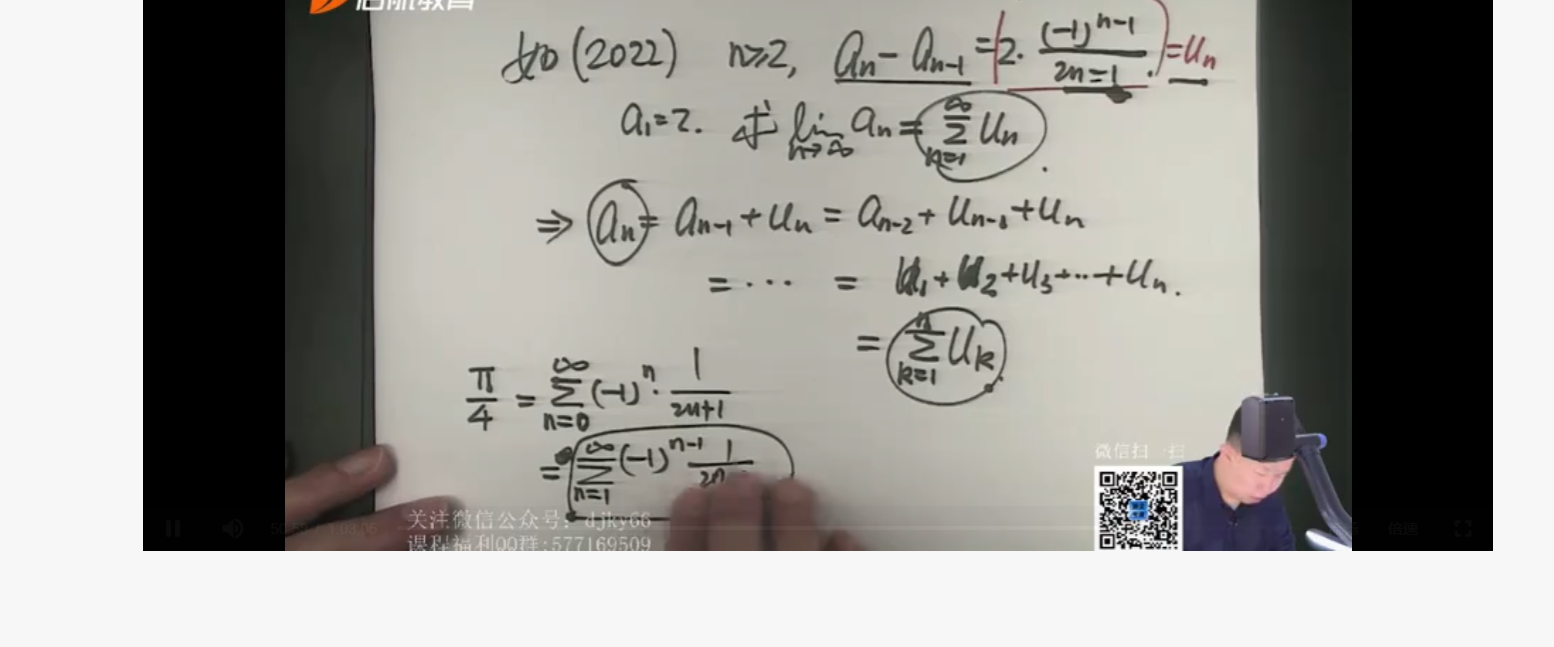 启航教育
如(2022) n≥2, aₙ - aₙ₋₁ = 2·(-1)ⁿ⁻¹/(2n-1) = uₙ
a₁=2. 求 lim n→∞ aₙ = ∑ n=1 ∞ uₙ.
⇒ aₙ = aₙ₋₁ + uₙ = aₙ₋₂ + uₙ₋₁ + uₙ
= ··· = u₁ + u₂ + u₃ + ··· + uₙ.
= ∑ k=1 n uₖ.
π/4 = ∑ n=0 ∞ (-1)ⁿ · 1/(2n+1)
= ∑ n=1 ∞ (-1)ⁿ⁻¹ 1/2n
微信扫一扫
关注微信公众号: djky66
课程福利QQ群:577169509
倍速